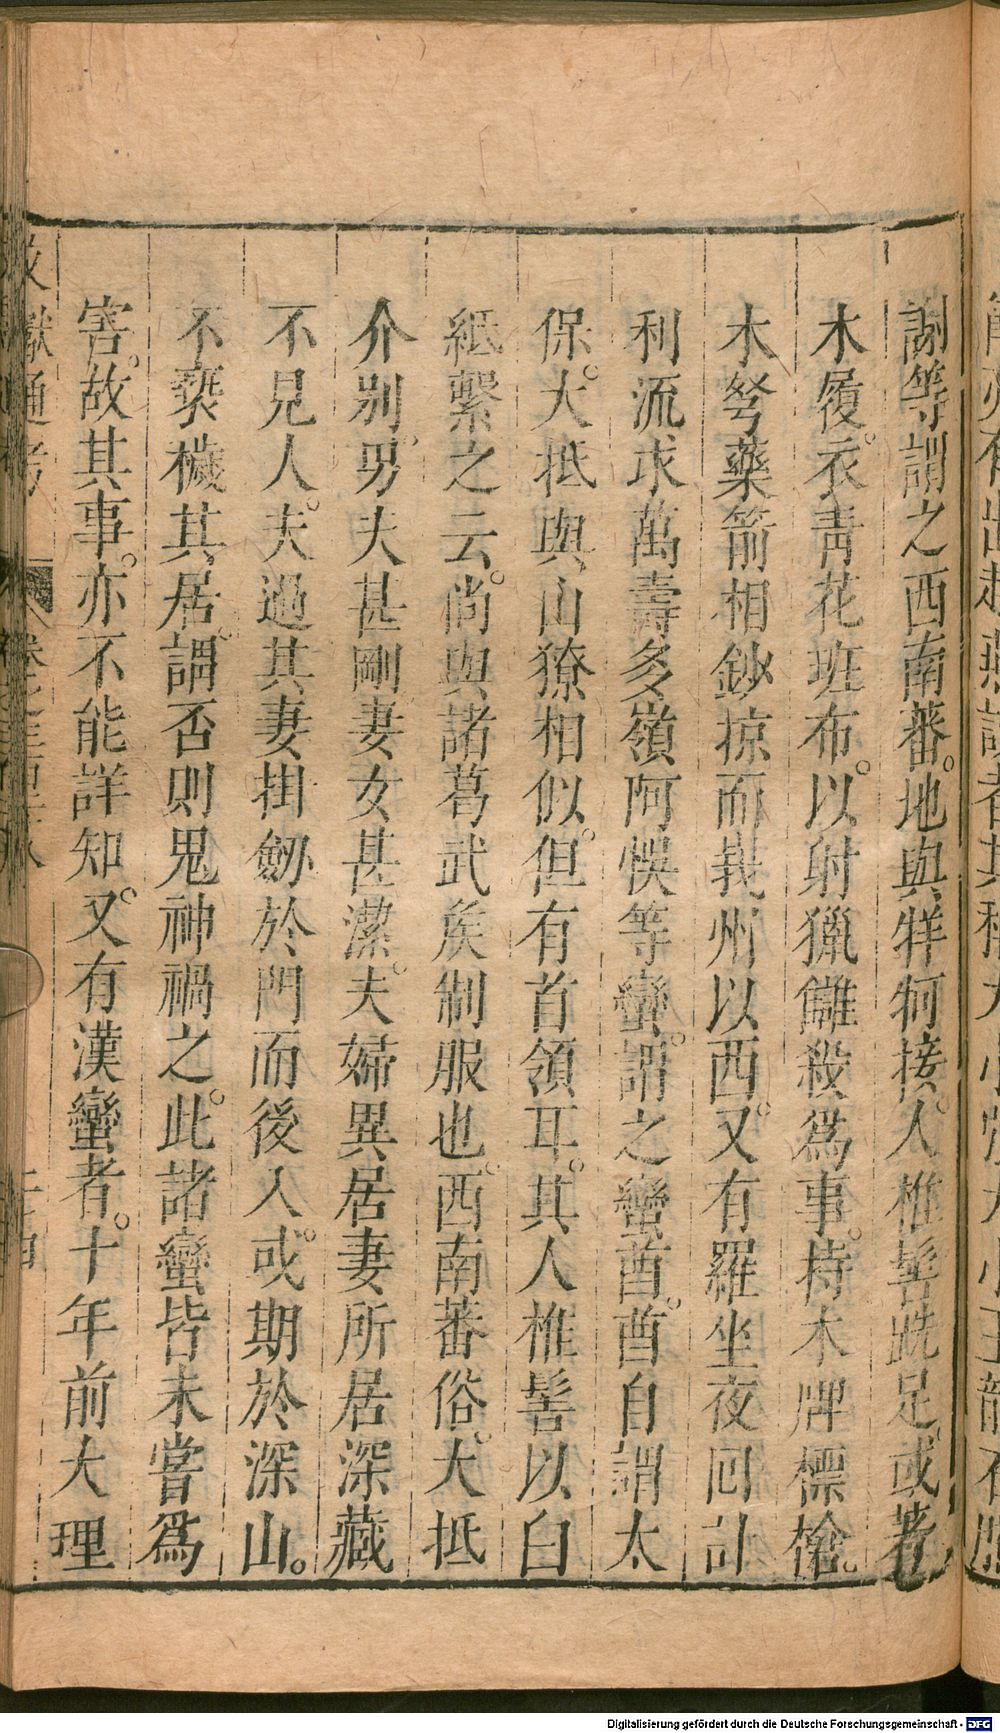 謝等謂之西南蕃。地與牂牁接。人椎髻跣足。或著
木履。衣靑花班布。以射獵讎殺爲事。持木牌標槍
木弩藥箭相鈔掠而峩州以西。又有羅坐夜囘計
利流求萬壽多嶺阿悞等蠻。謂之蠻酋。酋自謂太
保。大抵與山獠相似。但有首領耳。其人椎髻以白
紙繫之云。尚與諸葛武矦制服也。西南蕃俗。大抵
介别。男夫甚剛妻女甚潔。夫婦異居妻所居深藏
不見人。夫過其妻掛劒於門而後入。或期於深山。
不褻穢其居。謂否則鬼神禍之。此諸蠻皆未嘗爲
害。故其事。亦不能詳知。又有漢蠻者。十年前大理
文獻通考
Digitalisierung gefördert durch die Deutsche Forschungsgemeinschaft - DFG